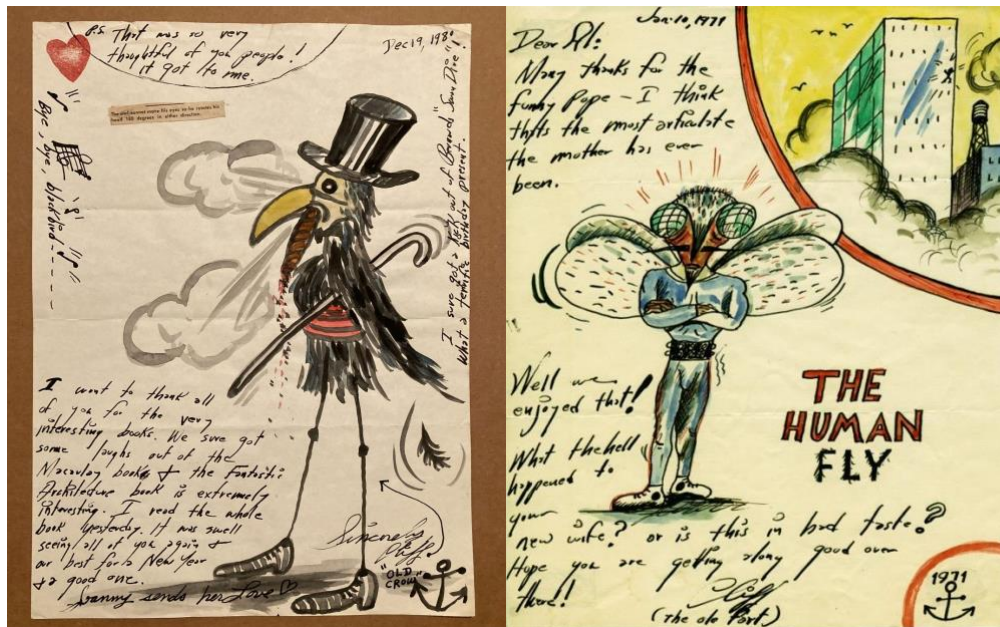 P.S. That was so very
thoughtful of you people!
it got to me.
Dec 19, 1980
bye, bye, blackbird - - - - -
I sure got a kick out of
What a terrific birthday present.
I want to thank all
of you for the very
interesting books. We sure got
some laughs out of the
Macaulay books & the Fantastic
Architecture book is extremely
interesting. I read the whole
book yesterday. It was swell
seeing all of you again &
our best for a New Year
& a good one.
Sincerely
Cliff
"OLD
CROW"
Granny sends her Love
Jan. 10, 1971
Many thanks for the
funny Pope - I think
thats the most articulate
the mother has ever
been.
Well we
enjoyed that!
What the hell
happened to
your
new wife? or is this in bad taste?
Hope you are getting along good over
there!
THE
HUMAN
FLY
Cliff
(The ole Fart)
1971